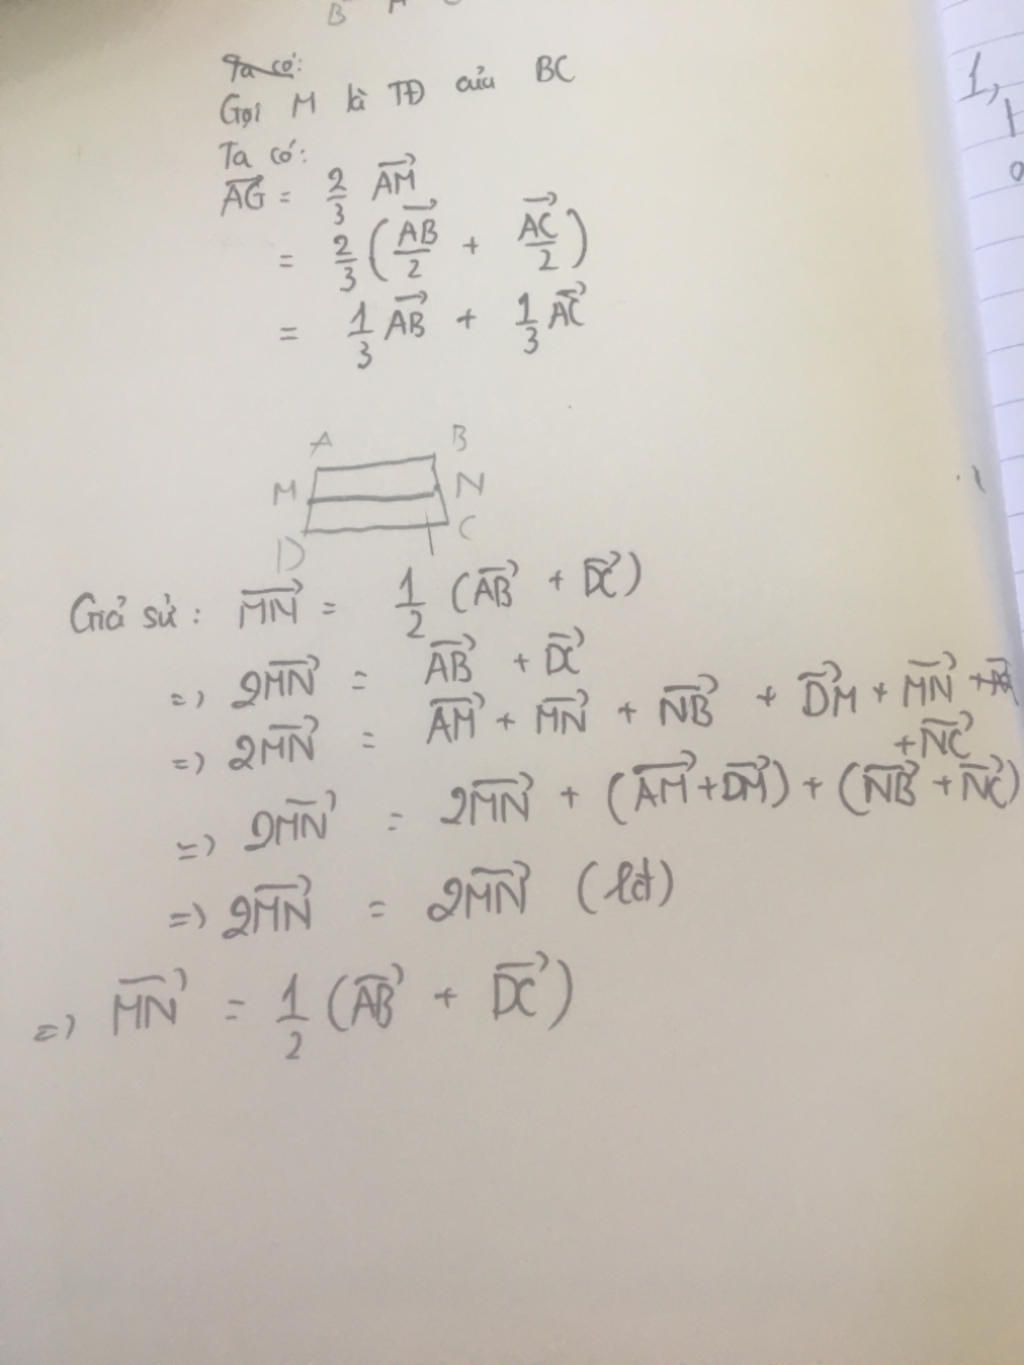 B A
Ta có:
Gọi M là TĐ của BC
Ta có:
$\overrightarrow{AG} = \frac{2}{3} \overrightarrow{AM}$
$= \frac{2}{3} \left( \frac{\overrightarrow{AB}}{2} + \frac{\overrightarrow{AC}}{2} \right)$
$= \frac{1}{3} \overrightarrow{AB} + \frac{1}{3} \overrightarrow{AC}$
A B
M N
D C
Giả sử: $\overrightarrow{MN} = \frac{1}{2} (\overrightarrow{AB} + \overrightarrow{DC})$
$\Rightarrow 2\overrightarrow{MN} = \overrightarrow{AB} + \overrightarrow{DC}$
$\Rightarrow 2\overrightarrow{MN} = \overrightarrow{AM} + \overrightarrow{MN} + \overrightarrow{NB} + \overrightarrow{DM} + \overrightarrow{MN}$
$+ \overrightarrow{NC}$
$\Rightarrow 2\overrightarrow{MN} = 2\overrightarrow{MN} + (\overrightarrow{AM} + \overrightarrow{DM}) + (\overrightarrow{NB} + \overrightarrow{NC})$
$\Rightarrow 2\overrightarrow{MN} = 2\overrightarrow{MN}$ (lđ)
$\Rightarrow \overrightarrow{MN} = \frac{1}{2} (\overrightarrow{AB} + \overrightarrow{DC})$
1,